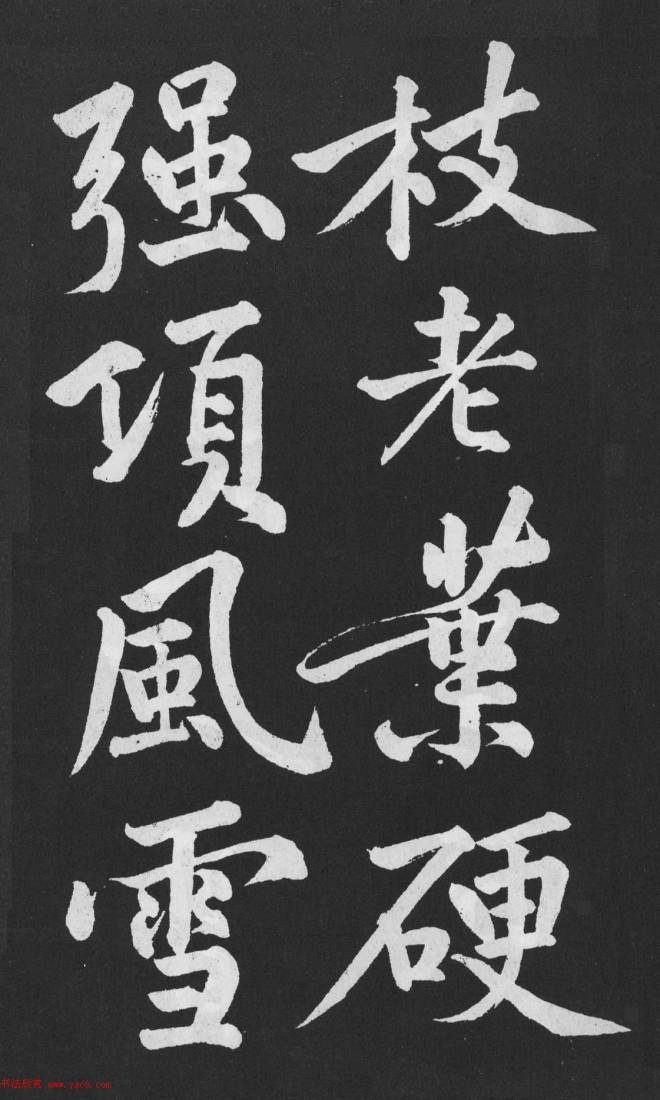 枝老葉硬
强項風雪
书法欣赏 www.yac8.com